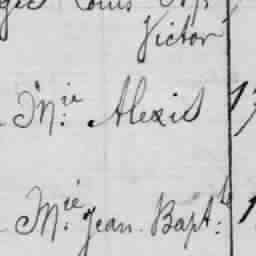 Louis
Victor
Mie. Alexis 1
Mie. Jean Bapt.te 1